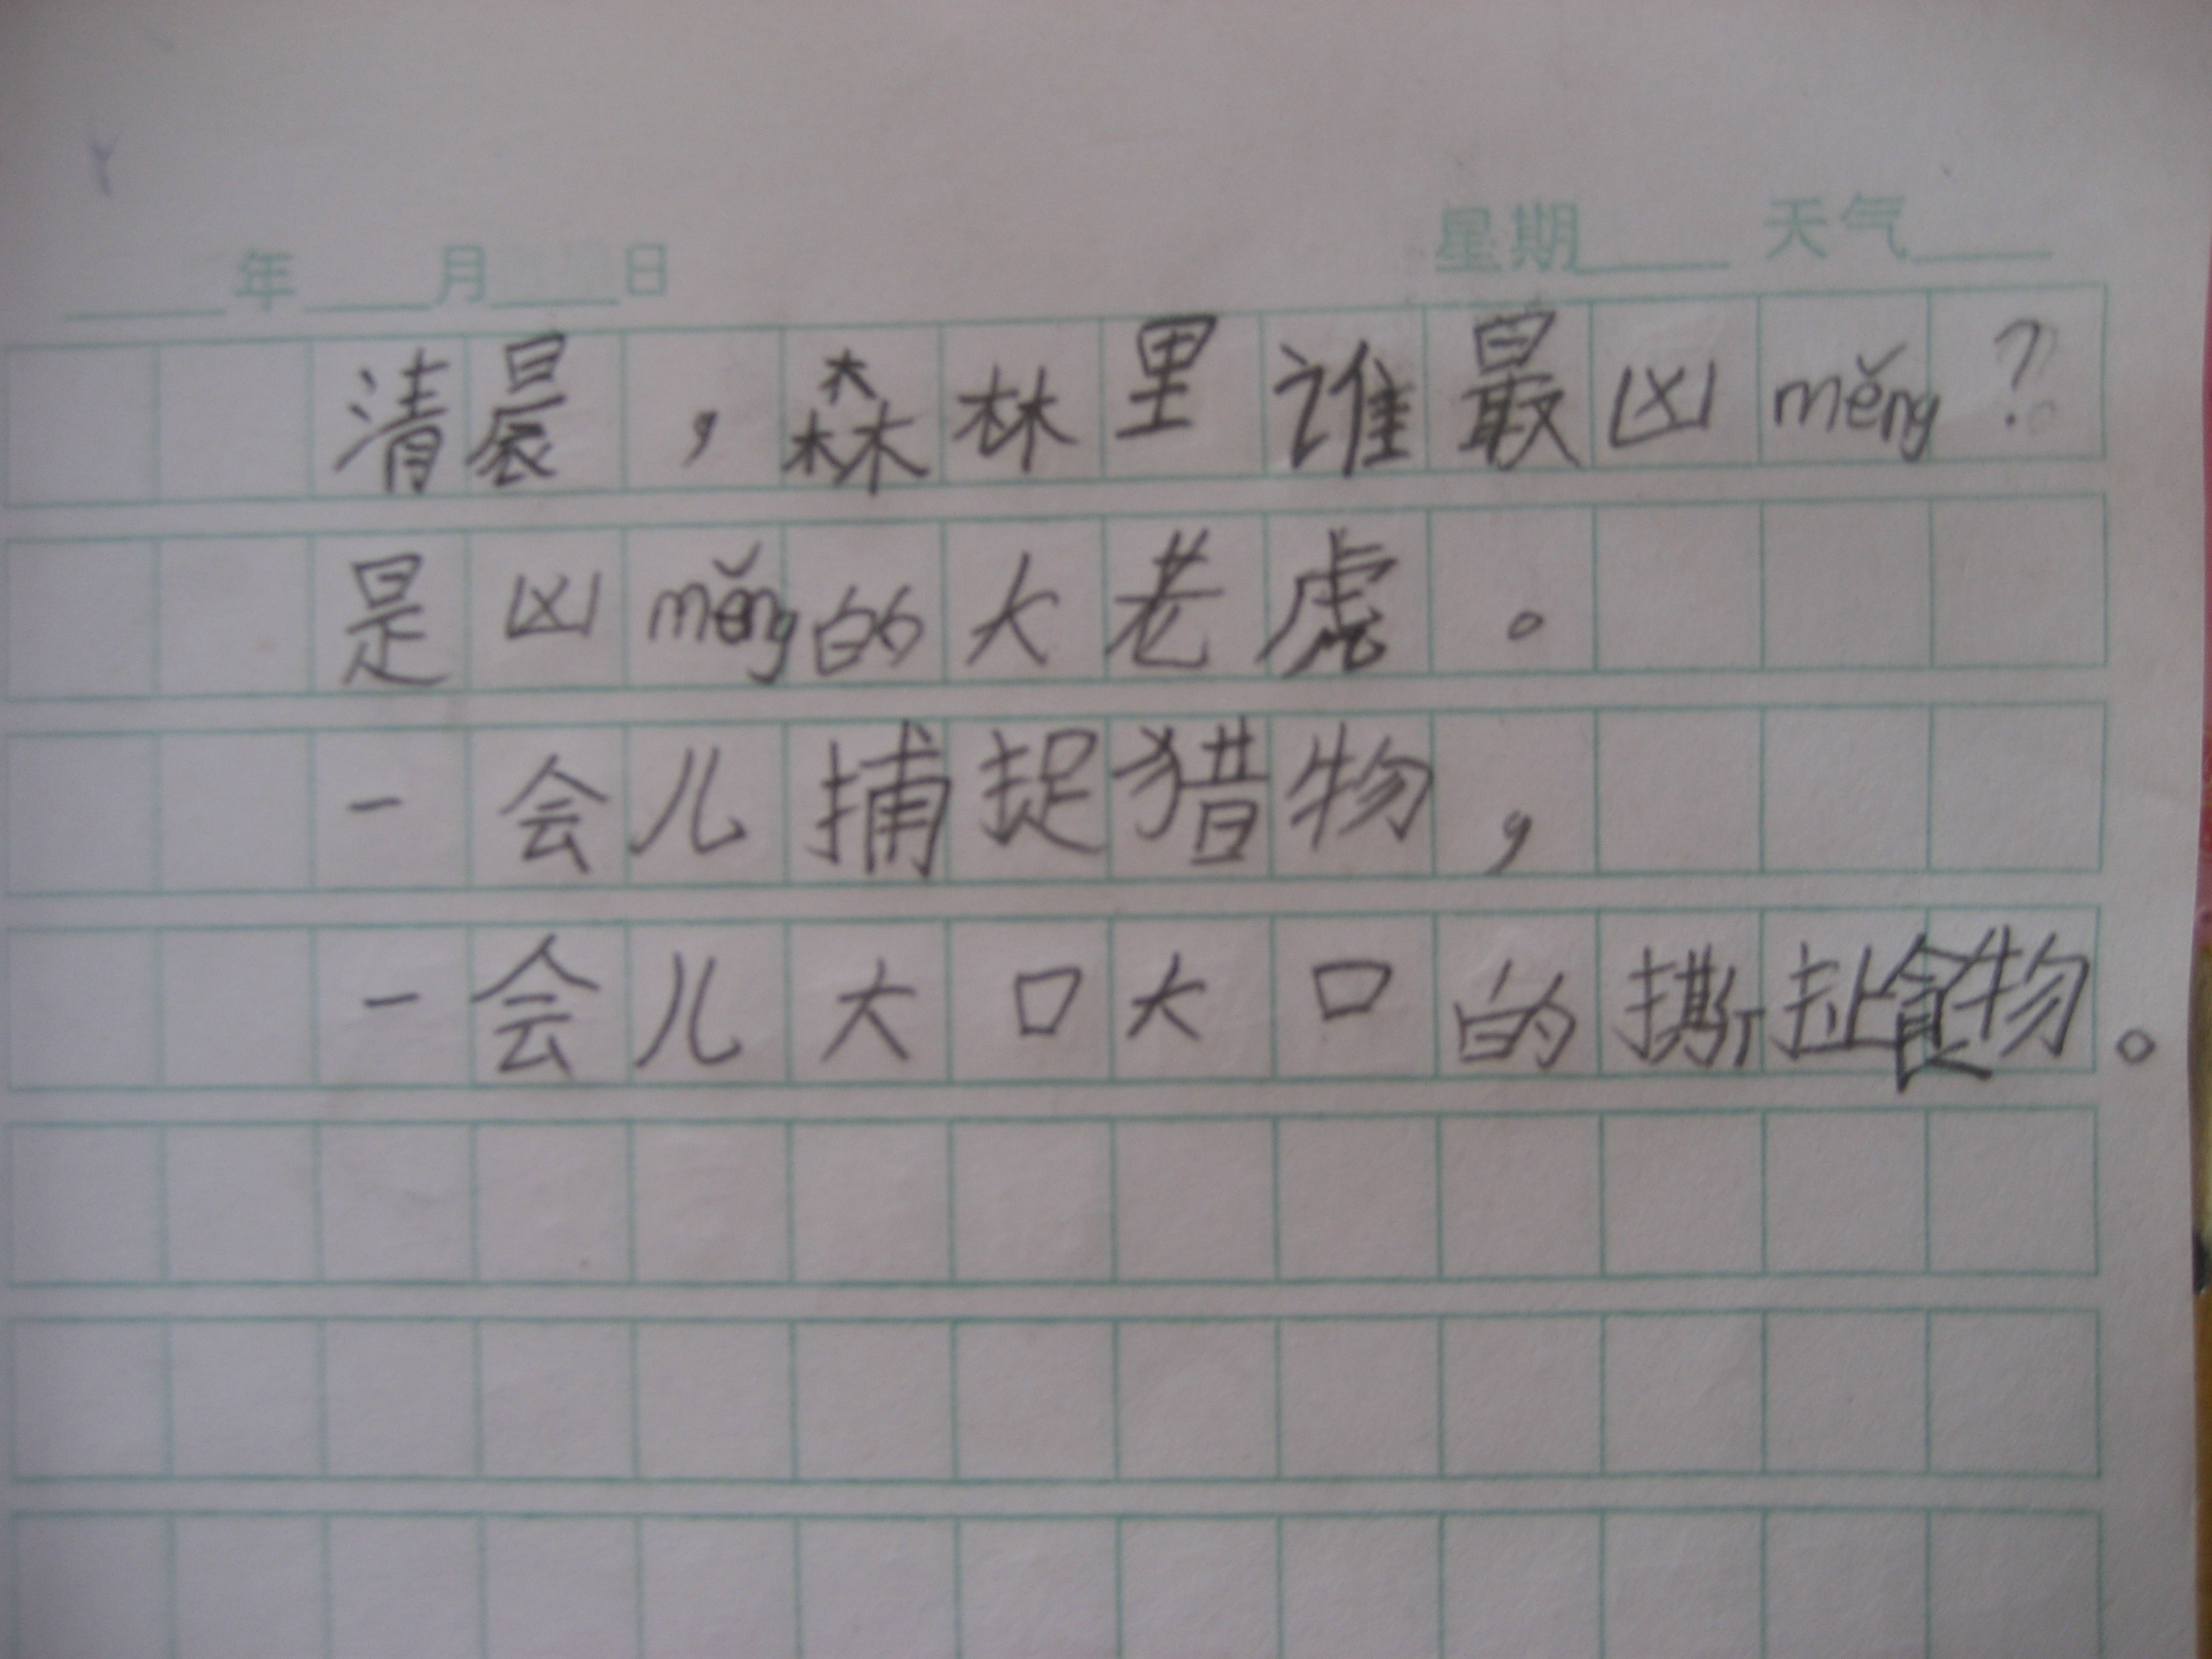 ____年____月____日 星期____ 天气____
清晨，森林里谁最凶měng？
是凶měng的大老虎。
一会儿捕捉猎物，
一会儿大口大口的撕扯食物。